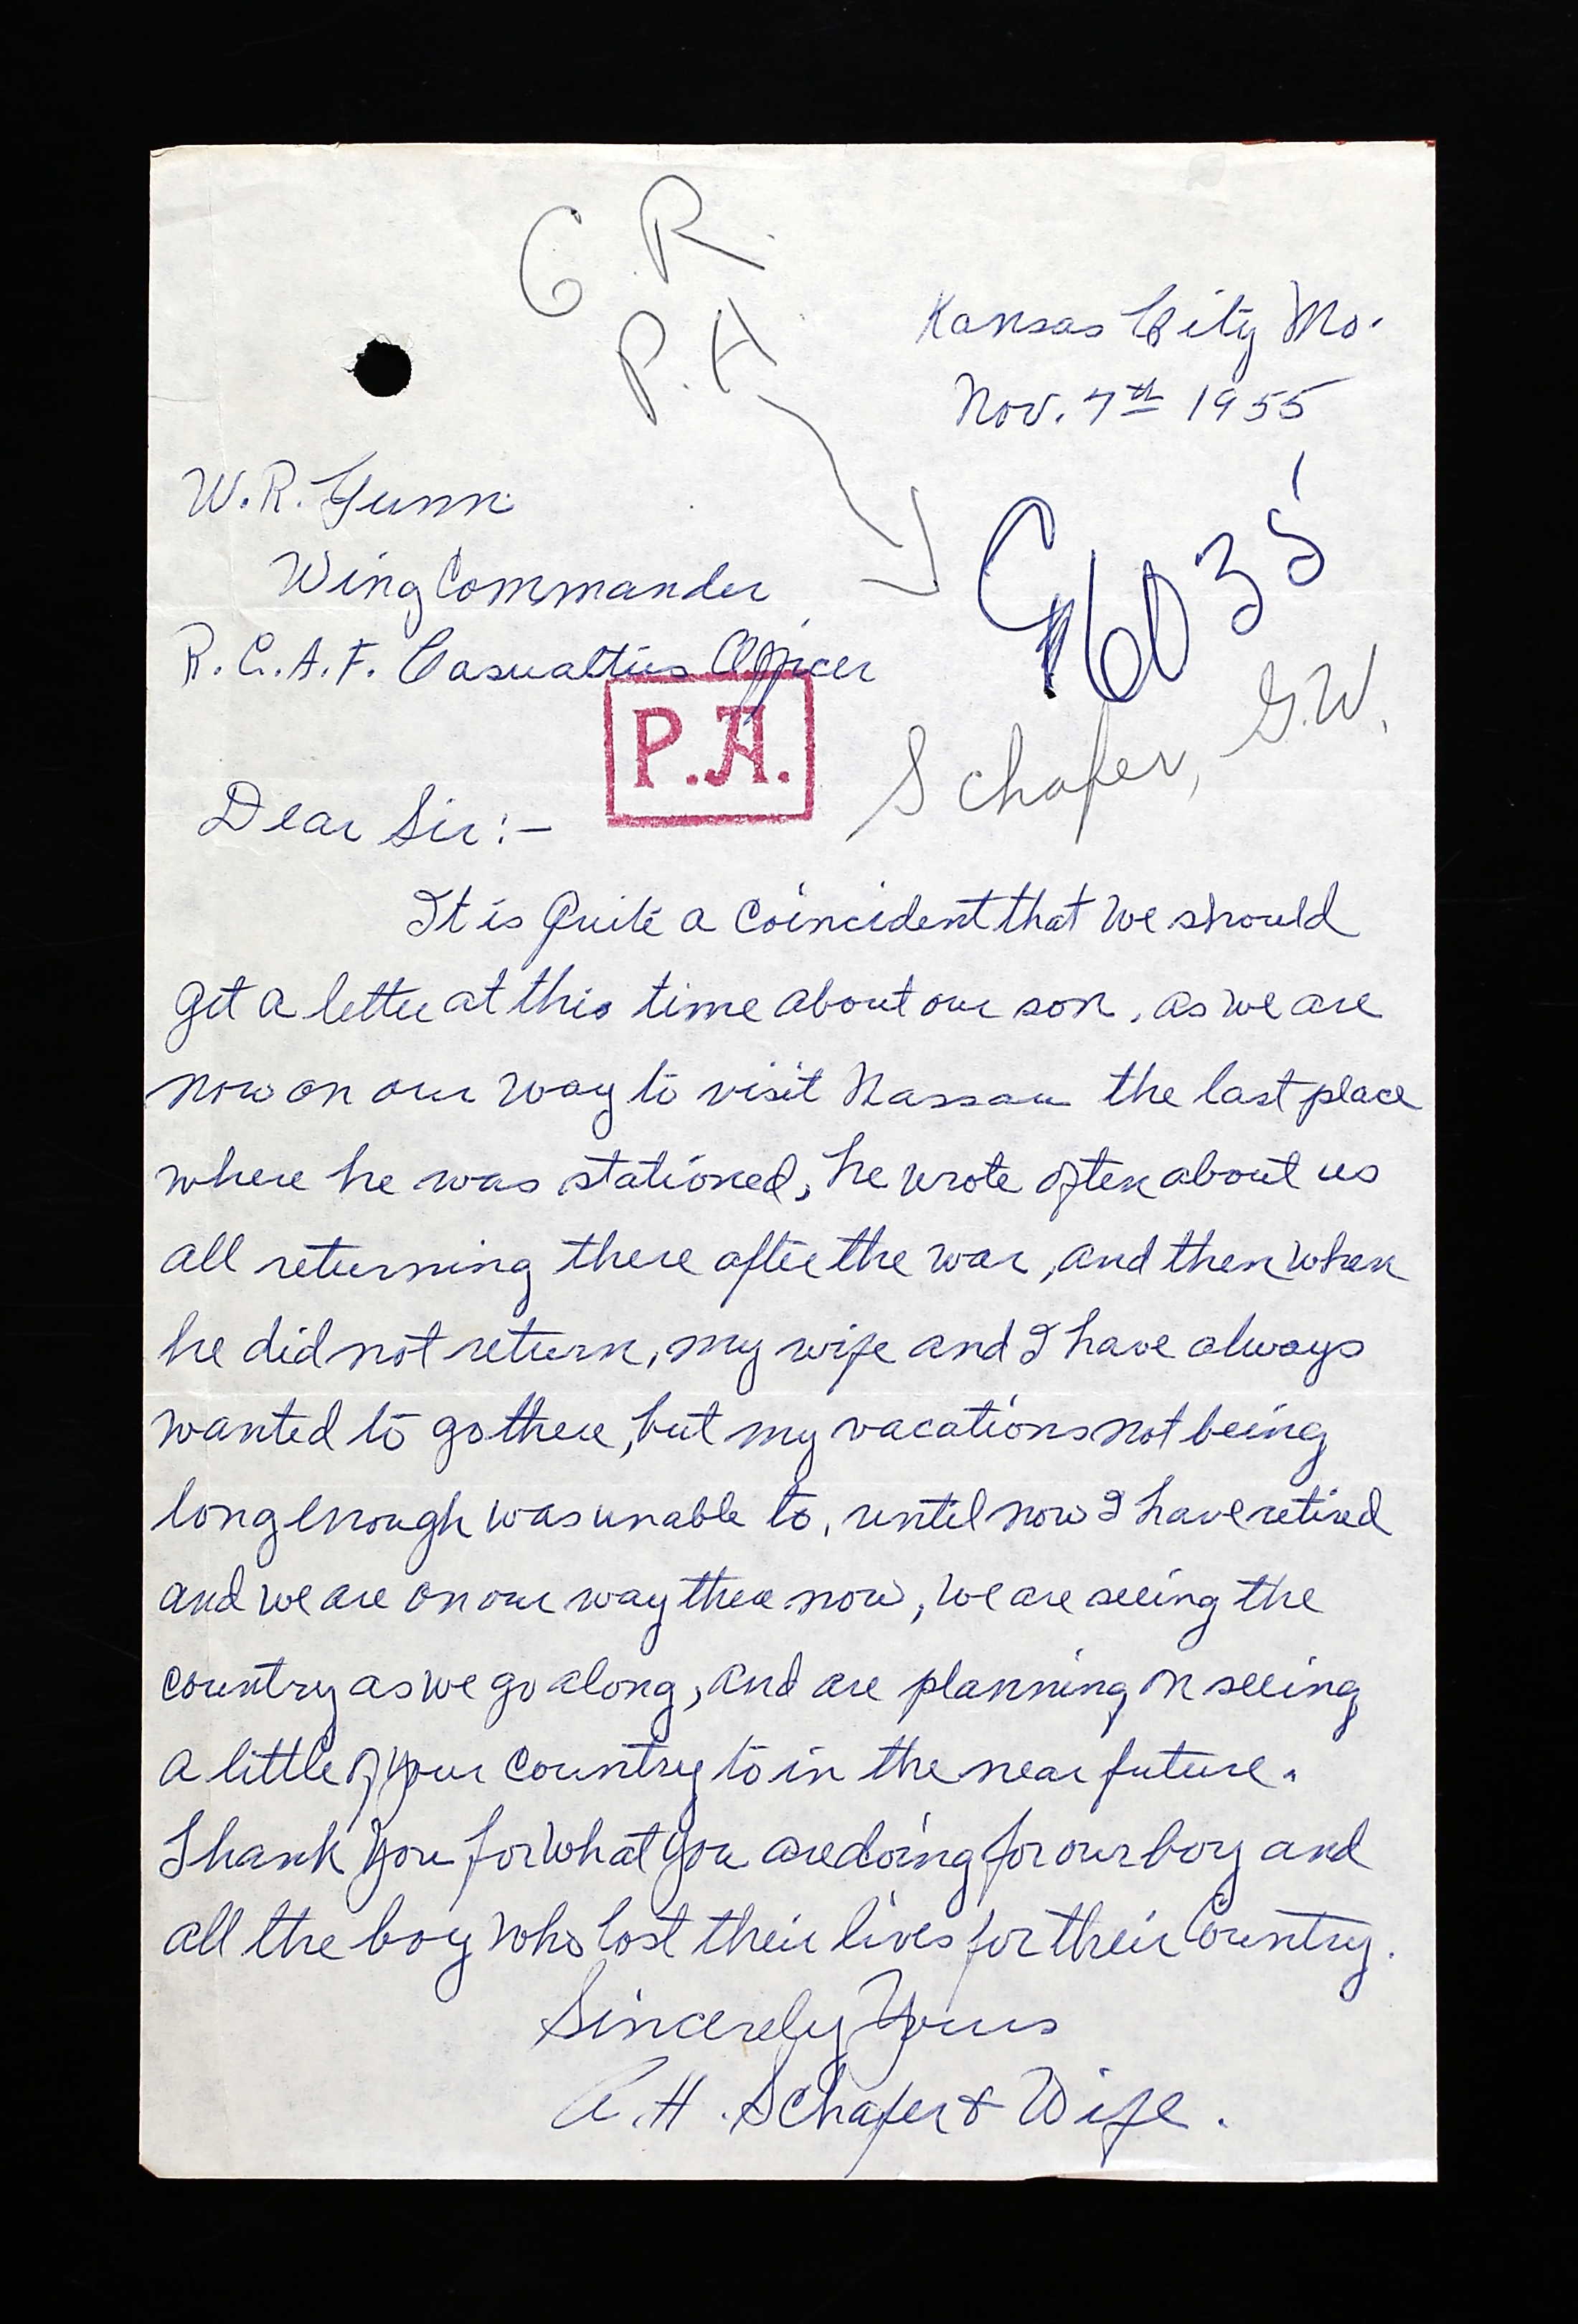 C R.
P.A
Kansas City Mo.
Nov. 7th 1955
W. R. Gunn
Wing Commander
R. C. A. F. Casualties Officer
P.A.
Schafer, G.W.
Dear Sir:-
It is quite a coincident that we should
get a letter at this time about our son, as we are
now on our way to visit Nassau the last place
where he was stationed, he wrote often about us
all returning there after the war, and then when
he did not return, my wife and I have always
wanted to go there, but my vacations not being
long enough was unable to, until now I have retired
and we are on our way there now, we are seeing the
country as we go along, and are planning on seeing
a little of your country to in the near future.
Thank you for what you are doing for our boy and
all the boy who lost their lives for their Country.
Sincerely Yours
A. H. Schafer & Wife.